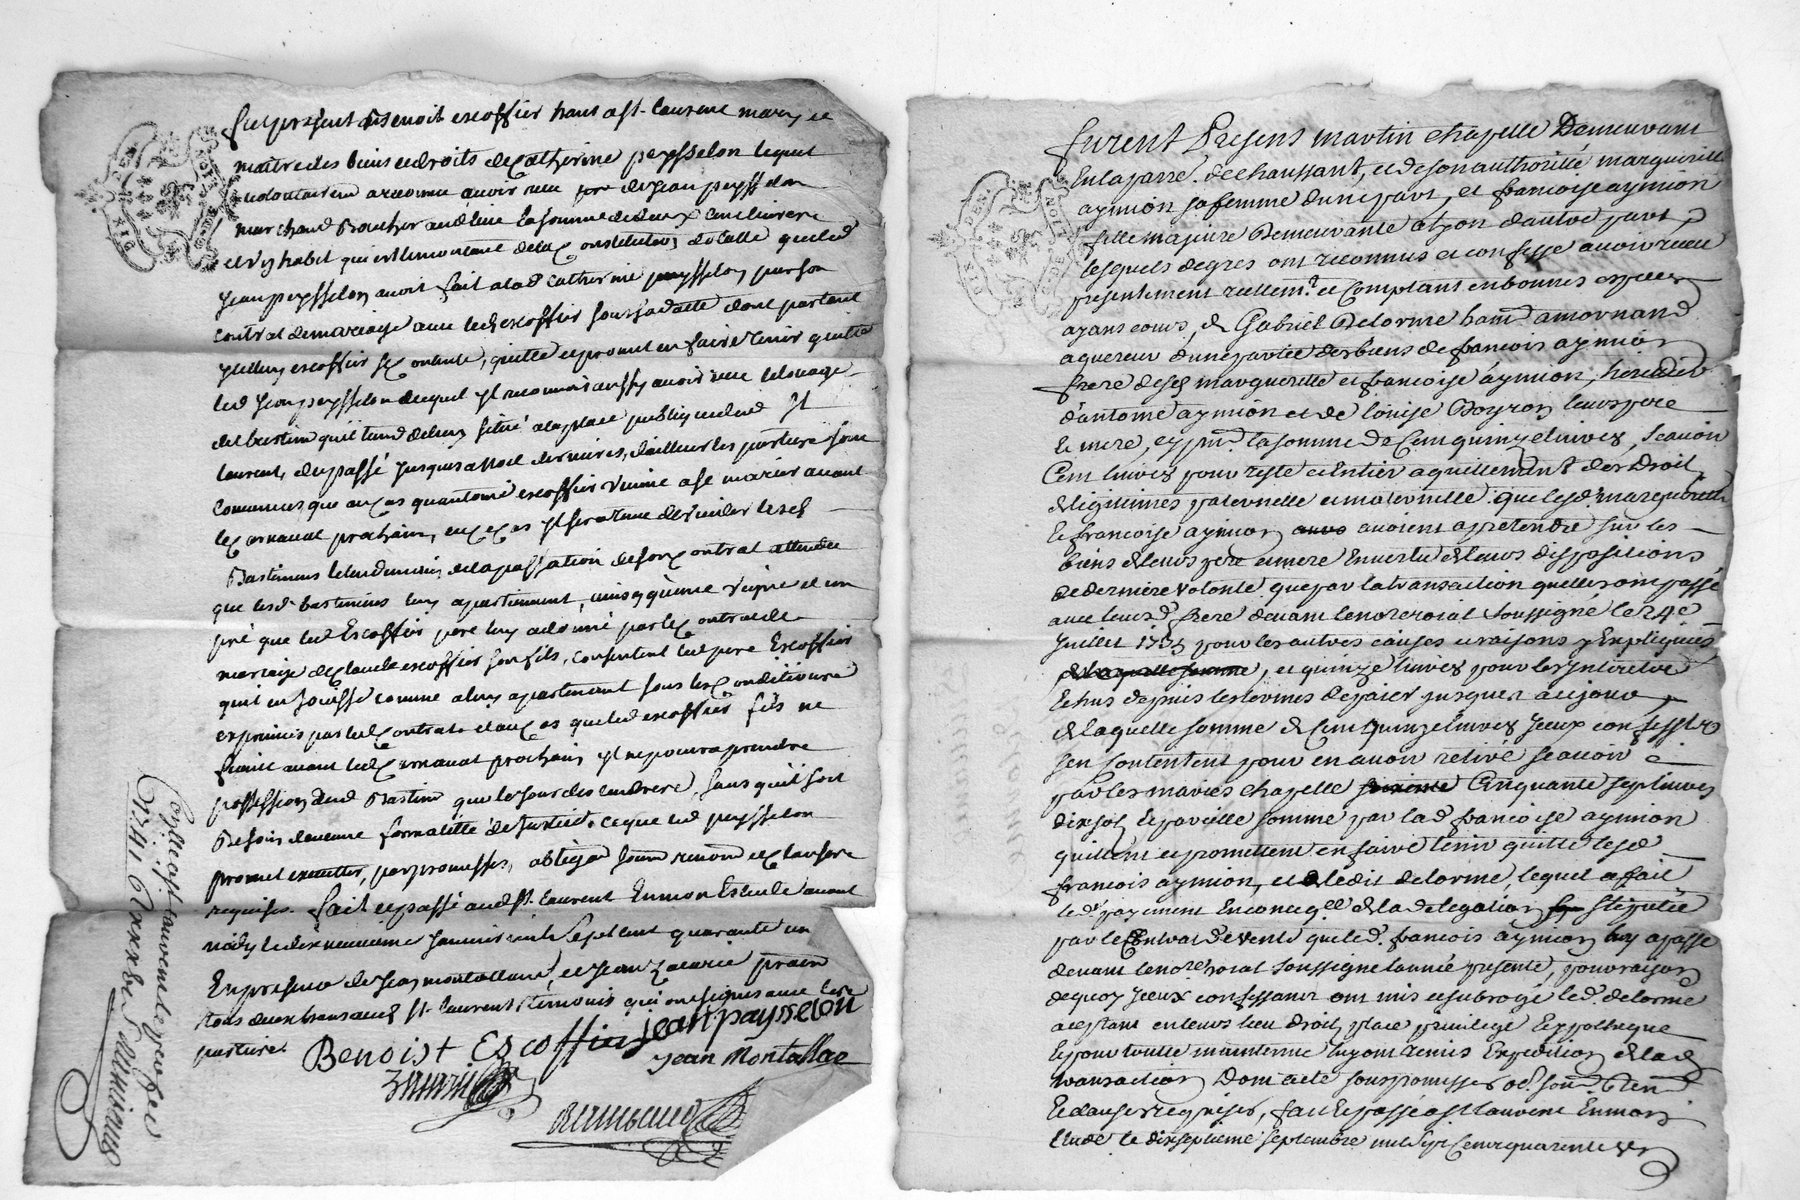 fut present Benoit escoffier hant a st. laurent mary et
maitre des biens et droits de Catherine peysselon lequel
volontairem a reconnu avoir reçu de Jean peysselon
marchand Boucher audlieu la somme de deux cent livres
et l'habit qui est le montant de la Constitution dotalle que led
Jean peysselon avoit fait a lad Catherine peysselon par son
contrat de mariage avec led escoffier sous sa datte dont partant
led escoffier se Contente, quitte et promet en faire tenir quitte
led Jean peysselon duquel il reconnois aussy avoir reçu le louage
del bastim qu'il tient de luy situé a la place publique dud St
laurent, du passé jusques a Noel dernier, d'ailleurs les parties sont
convenues que au cas qu'antoine escoffier vienne a se marier avant
le Carnaval prochain, en ce Cas il sera tenu de vuider lesd
Bastimens le lendemain de la passation de son Contrat attendu
que lesd bastimens luy apartiennent, ainsy qu'une vigne et un
pré que led Escoffier pere luy a donné par le Contrat de
mariage de claude escoffier son fils, consentent led pere Escoffier
qu'il en jouisse comme a luy apartenant sous les Conditions
exprimées par led Contrat et au Cas que led escoffier fils ne
avant led Carnaval prochain il ne pourra prendre
possession dud Bastim que le jour des cendres, sans qu'il soit
Besoin d'aucune formalitté de Justice. Ce que led peysselon
promet executter, par promesses, obliga soum renon et clauses
requises. fait et passé aud St. laurent En mon Estude avant
midy le dix neuvieme Janvier mil Sept Cent quarante un
En presence de Jean montalland, et Jean Zacarie prain
tous deux hants aud St laurent temoins qui ont signes avec les
parties.
Benoist Escoffier jean paysselon
Jean Montallae
Conlle a st. laurent le
1741 Reçu
furent Presens martin chapelle Demeurant
En la parre. de chaussant, et de son authorité margueritte
aymion sa femme d'une part, et francoise aymion
fille majeure Demeurante a lyon d'autre part,
lesquels de gres ont reconnus et confesse avoir receu
presentement reellemt. et Comptant en bonnes especes
ayans cours, de Gabriel Delorme hant a mornand
aquereur d'une partie des biens de francois aymion
frere desd margueritte et francoise aymion, heritier
d'antoine aymion et de louise Boyron leurs pere
et mere, la somme de Cent quinze livres, Scavoir
Cent livres pour reste et Entier aquittement des Droits
de legitimes paternelle et maternelle que lesd. margueritte
et francoise aymion avoient a pretendre sur les
biens de leurs pere et mere En vertu de leurs dispositions
de derniere volonté, que par la transaction quelles ont passé
avec leurd. frere devant le nore roial Soussigné le 24e
Juillet 1735 pour les autres causes et raisons y Expliquées
de laquelle somme, et quinze livres pour les Interets
Echus depuis les termes de paier jusques a ce jour,
de laquelle somme de Cent Quinze livres yceux confessants
sen contentent pour en avoir retiré scavoir
par les mariés chapelle soixante Cinquante sept livres
dix sols, et pareille somme par lad francoise aymion
quittent et promettent en faire tenir quitte led
francois aymion, et ledit delorme, lequel a fait
led. payement En conseqce de la delegation stipulée
par le Contrat de vente que led. francois aymion luy a passé
devant le nore roial soussigné lannée presente, pour raison
de quoy yceux confessants ont mis et subrogé led. delorme
aceptant en leurs lieu droit, place privilege Et ypotheque
Et pour toutte maintenue luy ont remis Expedition de lad
transaction Dont acte sous promesses ob. soum Renon
Et clauses requises, fait Et passé a st laurent En mon
Etude le dix septieme septembre mil sept Cent quarante un